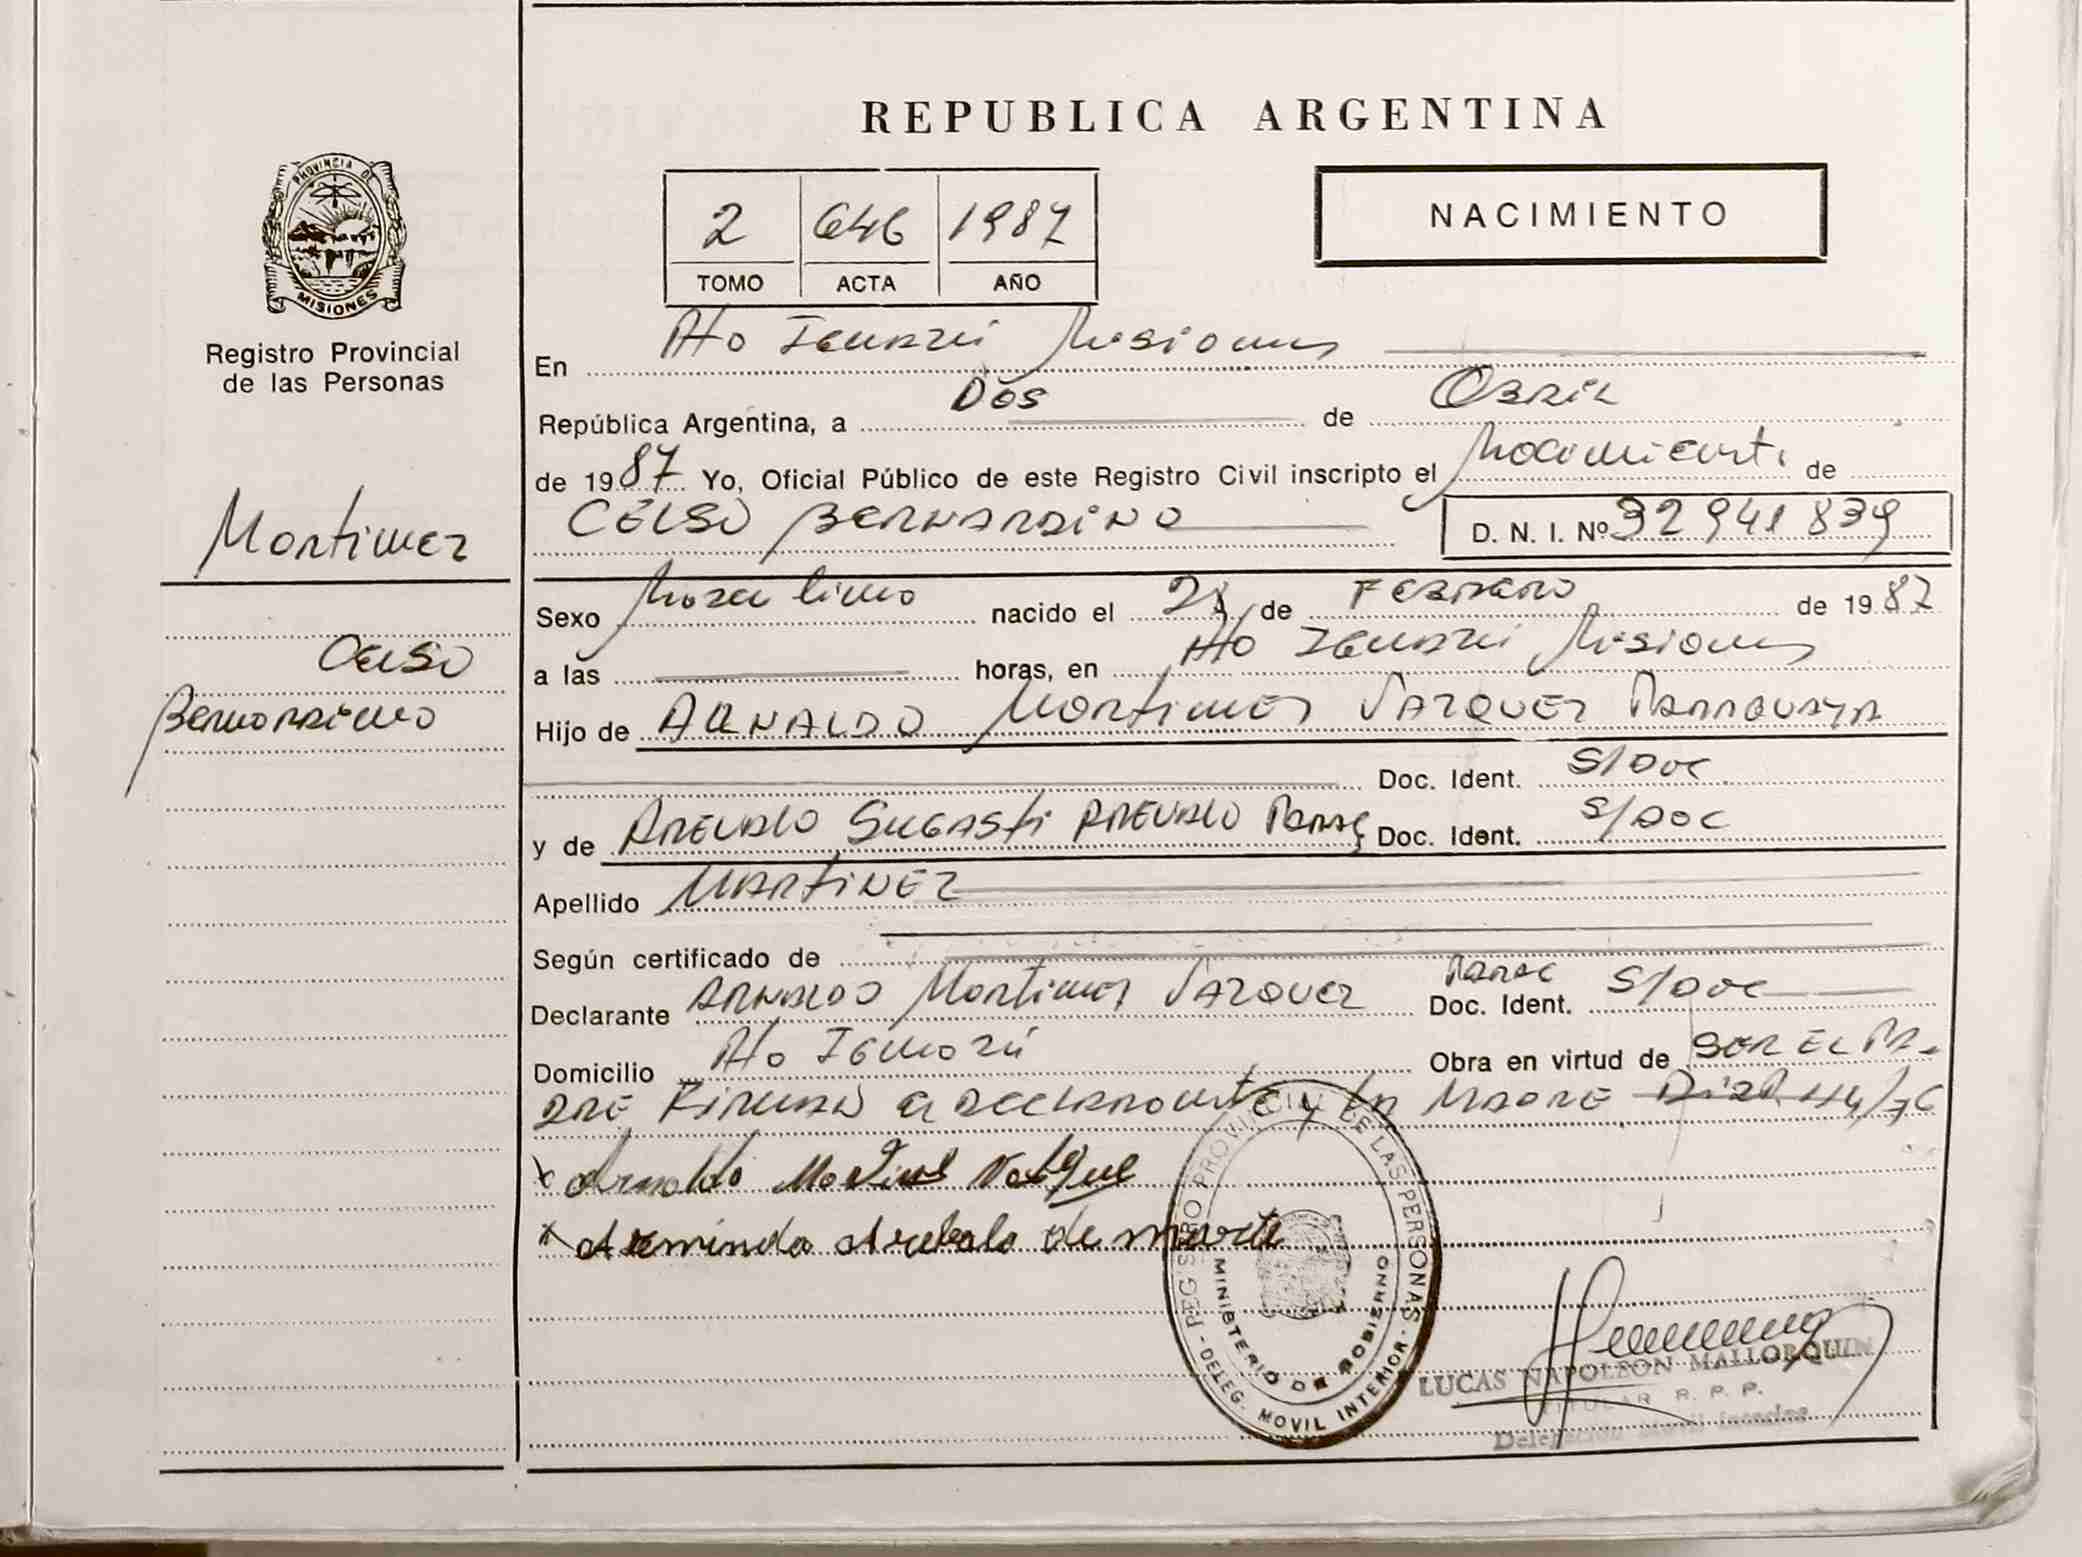 REPUBLICA ARGENTINA
PROVINCIA DE
MISIONES
Registro Provincial
de las Personas
2 646 1987
TOMO ACTA AÑO
NACIMIENTO
En Pto Iguazú Misiones
República Argentina, a Dos de Abril
de 1987 Yo, Oficial Público de este Registro Civil inscripto el Nacimiento de
CELSO BERNARDINO D. N. I. Nº 32941839
Martinez
Celso
Bernardino
Sexo Masculino nacido el de FEBRERO de 1987
a las horas, en Pto Iguazú Misiones
Hijo de ARNALDO Martinez VAZQUEZ PARAGUAYA
Doc. Ident. S/Doc
y de AREVALO Doc. Ident. S/DOC
Apellido MARTINEZ
Según certificado de
Declarante ARNALDO Martinez VAZQUEZ Parag Doc. Ident. S/Doc
Domicilio Pto Iguazú Obra en virtud de SER EL PA-
DRE FIRMAN el declarante y la MADRE
x Arnaldo
x Arminda Arebalo de
REGISTRO PROVINCIAL DE LAS PERSONAS
MINISTERIO DE GOBIERNO
- DELEG. MOVIL INTERIOR -
LUCAS NAPOLEON MALLORQUIN
TITULAR R. P. P.
Delegación Movil Interior